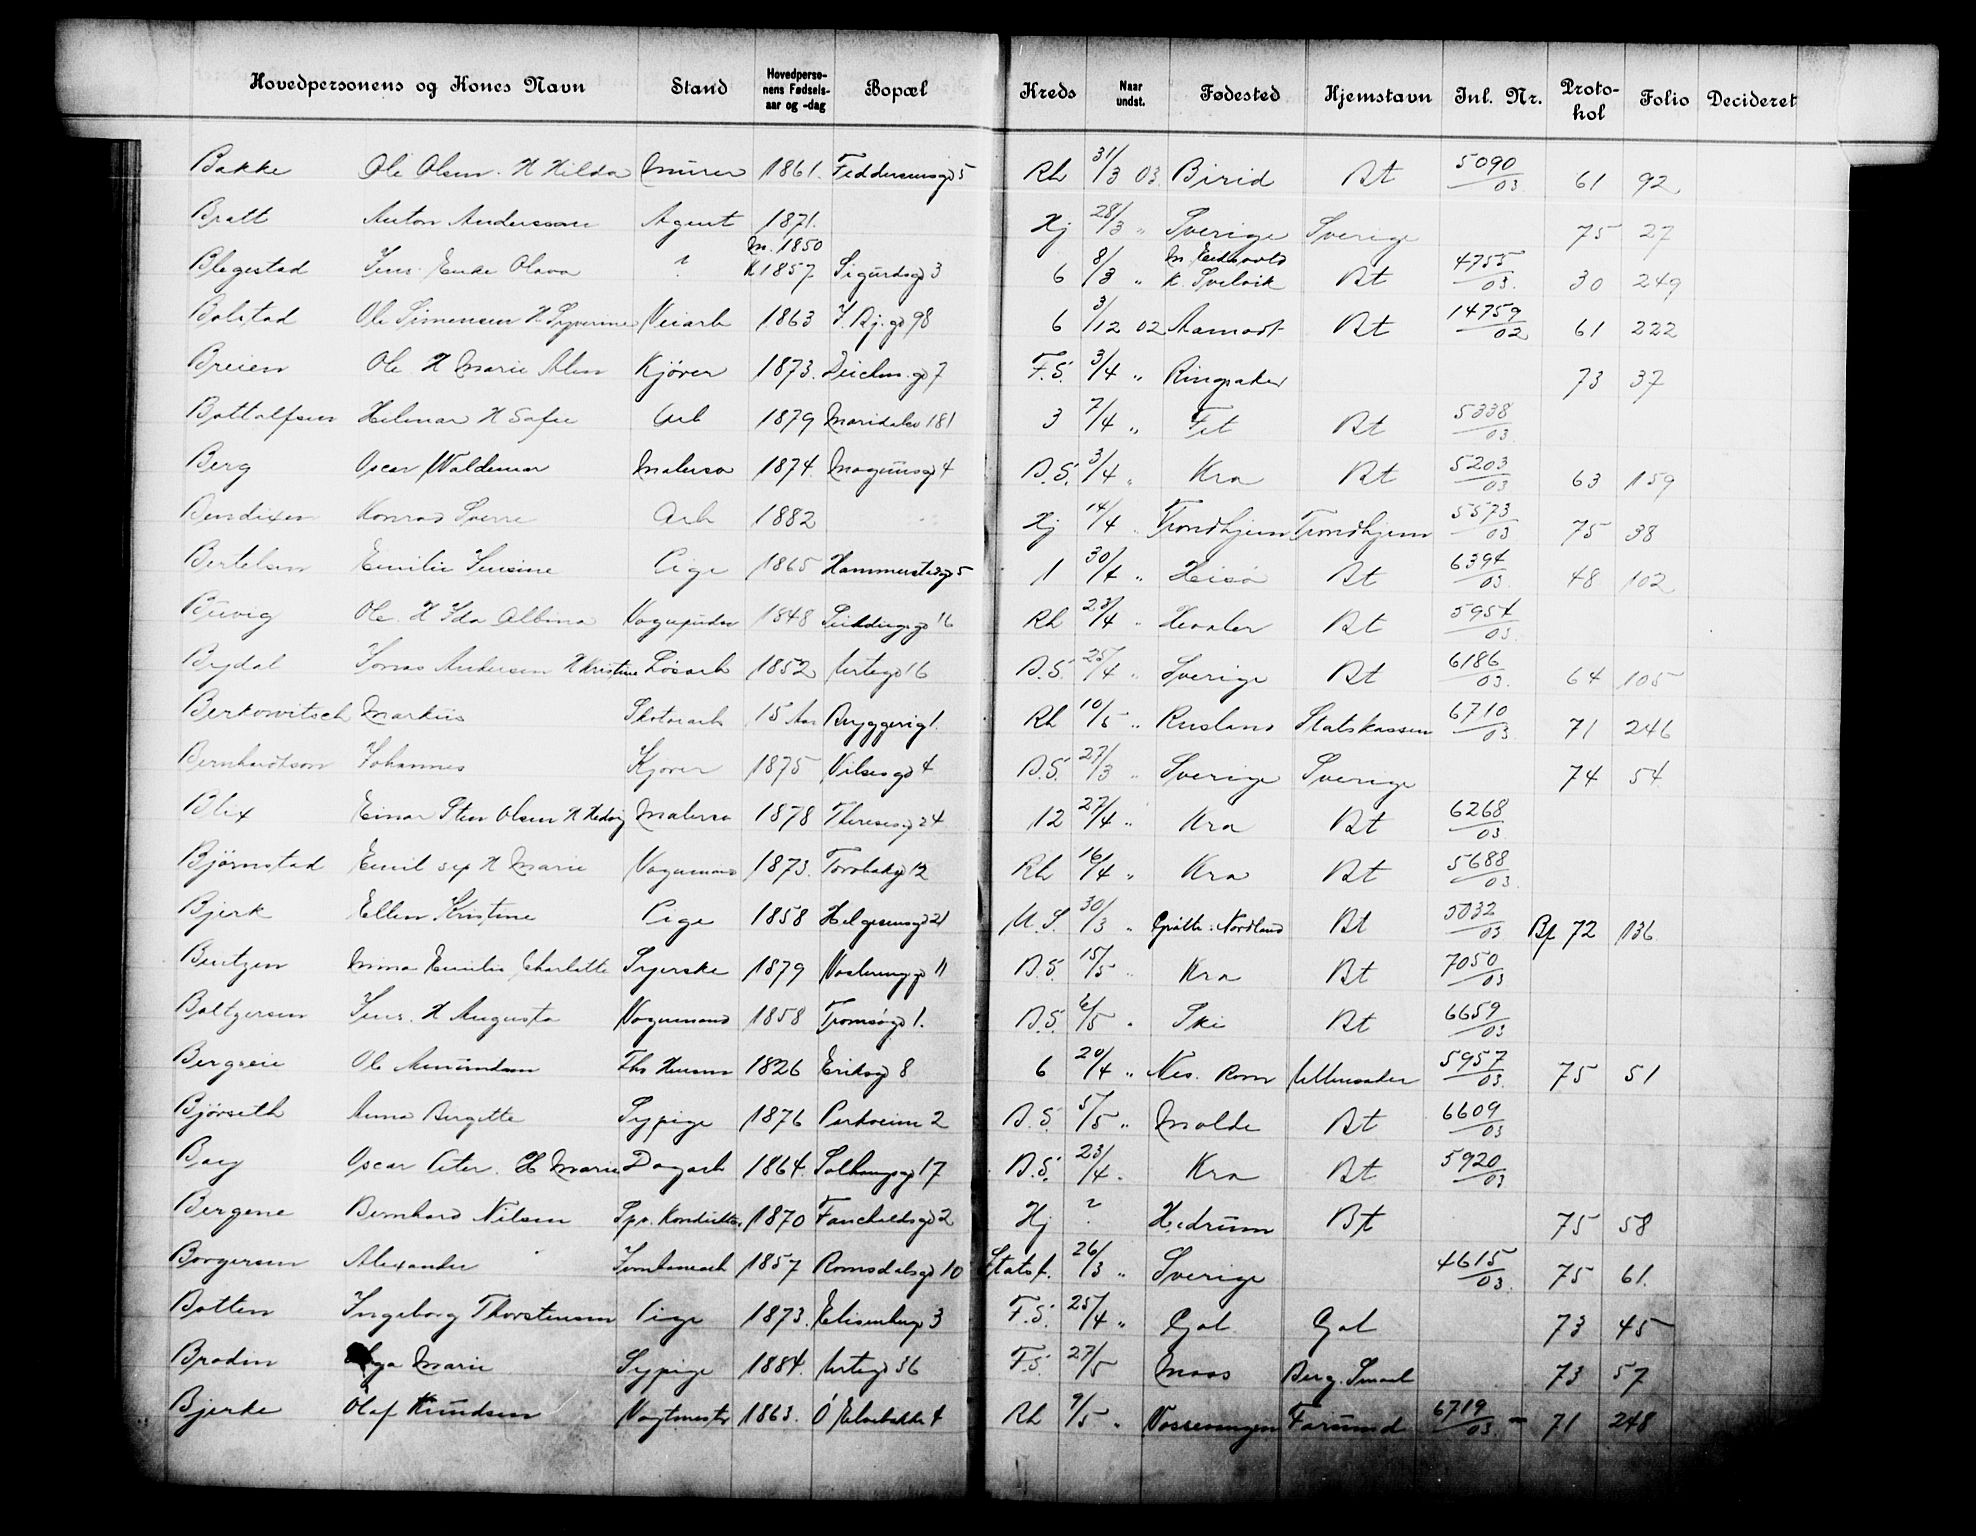 Hovedpersonens og Kones Navn Stand Hovedperso-nens Fødsels-aar og -dag Bopæl Kreds Naar undst. Fødested Hjemstavn Inl. Nr. Proto-kol Folio Decideret
Bakke Ole Olsen. H Hilda Murer 1861. Feddersensgd 5 Rh 31/3 03 Birid Bt 5090/03 61 92
Bratt Anton Anderssen Agent 1871. Hj 28/3 " Sverige Sverige 75 27
Blegestad Jens. Enke Olava ? M. 1850 K 1857 Sigurdsgd 3 6 8/3 " M. Eidsvold K. Svelvik Bt 4755/03. 30 249
Bolstad Ole Simensen H Syverine Veiarb 1863 T. Bj. gd 98 6 3/12 02 Aamodt Bt 14759/02 61 222
Breien Ole H Marie Alen Kjører 1873. Deichm. gd 7 F.S. 3/4 " Ringsaker 73 37
Bottolfsen Helmar H Sofie Arb 1879 Maridalsv 181 3 7/4 " Fet Bt 5338/03
Berg Oscar Waldemar Malersv 1874. Magnusgd 4 B.S. 3/4 " Kra Bt 5203/03 63 159
Bendixen Konrad Sverre Arb 1882 Hj 14/4 " Trondhjem Trondhjem 5573/03 75 38
Bertelsen Emilie Jensine Pige 1865 Hammerstadgd 5 1 30/4 " Heisø Bt 6394/03. 48 102
Buvig Ole. H Ida Albina Vognpudser 1848 16 Rh 23/4 " Hvaler Bt 5954/03.
Brydal Jonas Andersen H Kristine Løsarb 1852 Urtegd 16 B.S. 25/4 " Sverige Bt 6186/03. 64 105
Berkowitsch Markus Skotøiarb 15 Aar Bryggerig 1. Rh 10/5 " Rusland Statskassen 6710/03 71 246
Bernhardtson Johannes Kjører 1875 Nilsesgd 4 B.S. 27/3 " Sverige Sverige 74 54
Blix Einar Sten Olsen H Hedvig Malersv 1878 Theresesgd 24 12 27/4 " Kra Bt 6268/03
Bjørnstad Emil sep H Marie Vognmand 1873. Torvbakgd 12 Rh 16/4 " Kra Bt 5688/03.
Bjerk Ellen Kristine Pige 1858 Helgesensgd 21 U.S. 30/3 " Nordland Bt 5032/03 Bf 72 136
Bentzen Emilie Charlotte Syerske 1879 11 B.S. 15/5 " Kra Bt 7050/03
Baltzersen Jens. H Augusta Vognmand 1858 Tromsøgd 1. B.S. 6/5 " Ski Bt 6659/03
Bergseie Ole Amundsen Ths Heusm 1826 Eriksgd 8 6 20/4 " Nes. Rom Ullensaker 5957/03. 75 51
Bjørseth Anna Bergitte Sypige 1876 Perkveien 2 B.S. 5/5 " Molde Bt 6609/03
Oscar Peter. H Marie Dagarb 1864. Solhaugsgd 17 B.S. 23/4. Kra Bt 5920/03
Bergene Bernhard Nilsen Spv. Konduktør 1870 Fauchaldsgd 2 Hj ? Hedrum Bt 75 58
Borgersen Alexander Jernbanearb 1857 Romsdalsgd 10 Statsf. 26/3 " Sverige 4615/03. 75 61.
Botten Ingeborg Thorstensen Pige 1873. Elisenbergv 3 F.S. 25/4 " Gol Gol 73 45
Brodin Olga Marie Sypige 1884. Urtegd 36 F.S. 27/5 Moss Berg. Smaal 73 57
Bjerke Olaf Knudsen Vagtmester 1863. Ø Elvebakke 4 Rh 9/5 " Vossevangen Farsund 6719/03 – 71 248